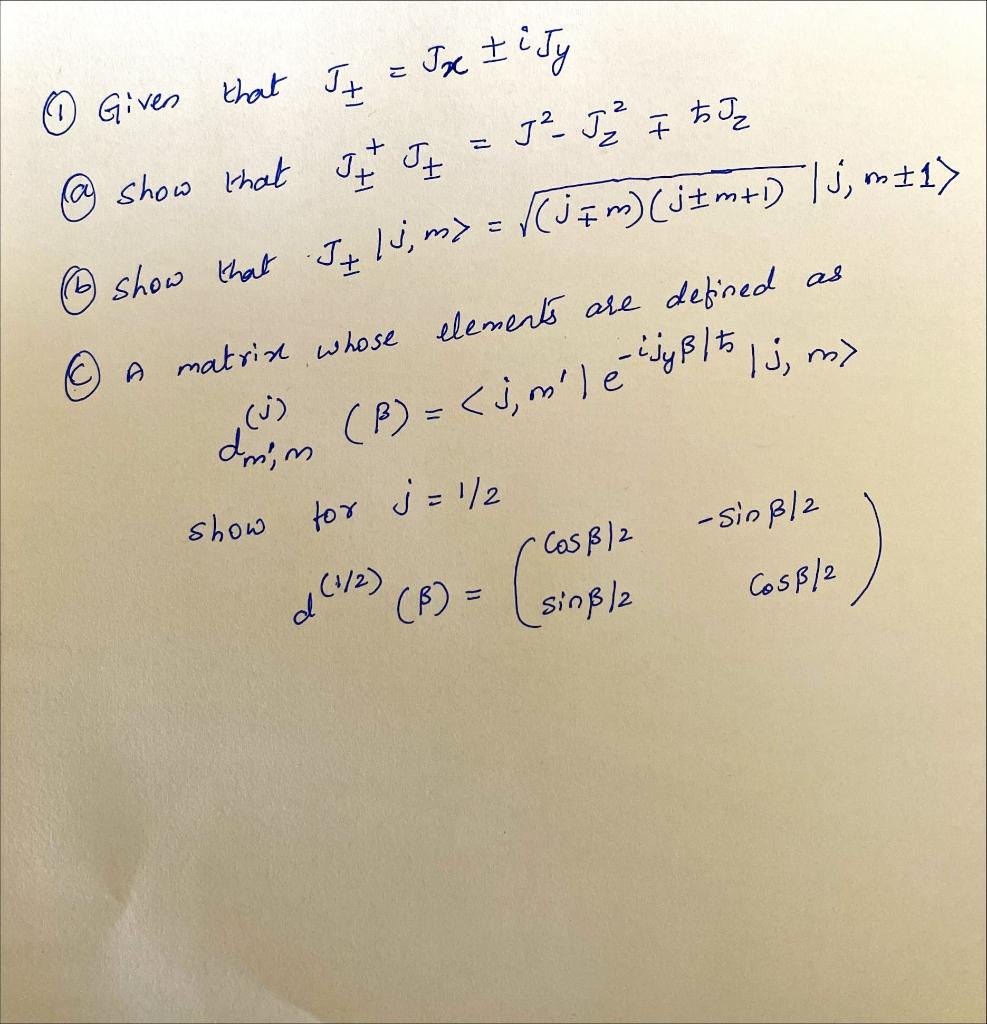 ① Given that J± = Jx ± i Jy
ⓐ show that J±⁺ J± = J² - Jz² ∓ ħJz
ⓑ show that J± |j, m> = √(j∓m)(j±m+1) |j, m±1>
ⓒ A matrix whose elements are defined as
d^(j)_m',m (β) = <j, m'| e^-ijyβ/ħ |j, m>
show for j = 1/2
d^(1/2) (β) = ( Cos β/2 -sin β/2
sin β/2 Cos β/2 )